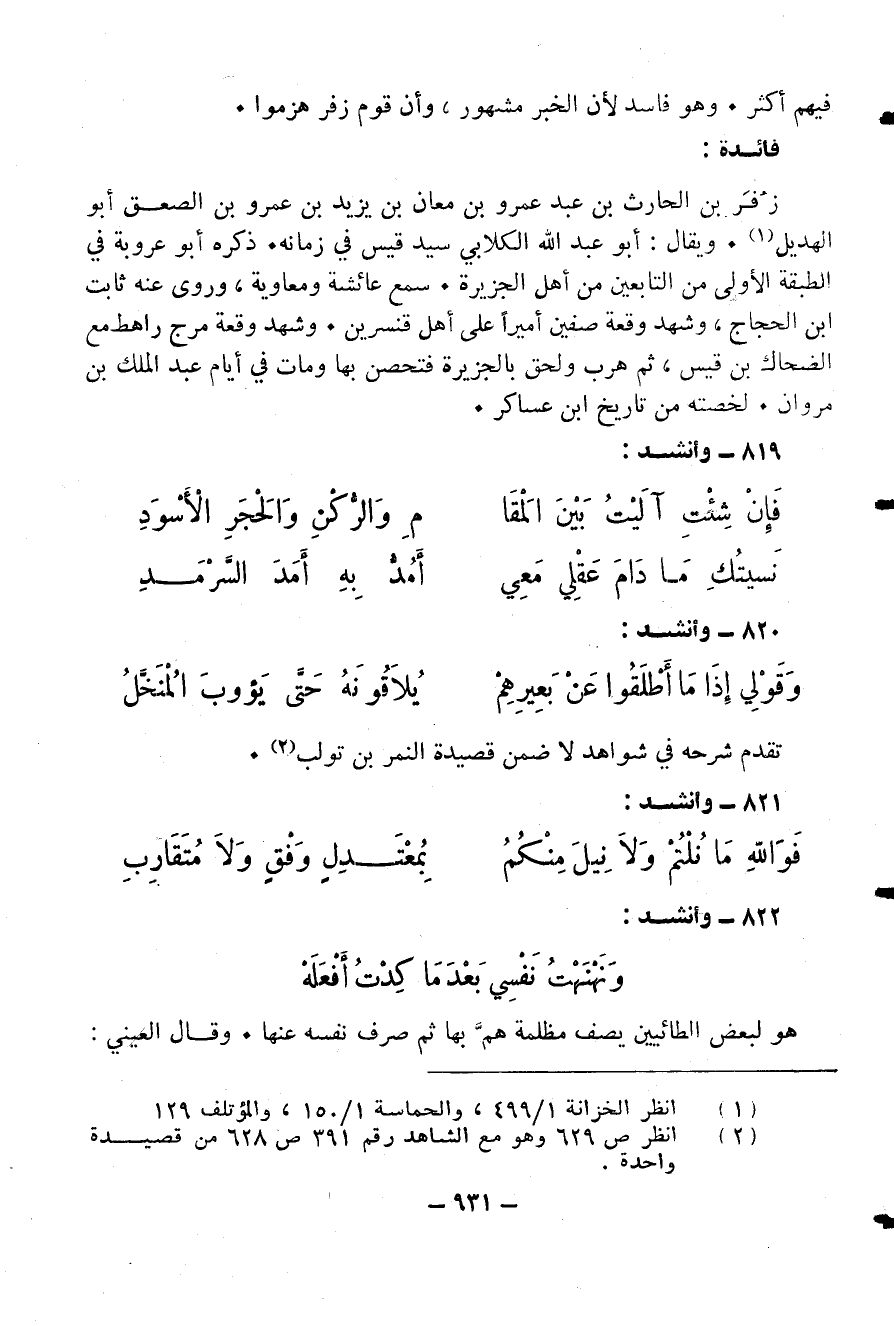 فيهم أكثر . وهو فاسد لأن الخبر مشهور ، وأن قوم زفر هزموا .
فائـدة :
زُفَر بن الحارث بن عبد عمرو بن معان بن يزيد بن عمرو بن الصعـق أبو
الهديل(١) . ويقال : أبو عبد الله الكلابي سيد قيس في زمانه. ذكره أبو عروبة في
الطبقة الأولى من التابعين من أهل الجزيرة . سمع عائشة ومعاوية ، وروى عنه ثابت
ابن الحجاج ، وشهد وقعة صفين أميراً على أهل قنسرين . وشهد وقعة مرج راهط مع
الضحاك بن قيس ، ثم هرب ولحق بالجزيرة فتحصن بها ومات في أيام عبد الملك بن
مروان . لخصته من تاريخ ابن عساكر .
٨١٩ ــ وأنشـد :
فَإِنْ شِئْتِ آلَيْتُ بَيْنَ المَقَا مِ وَالرُّكْنِ وَالْحَجَرِ الْأَسْوَدِ
نَسِيتُكِ مَـا دَامَ عَقْلِي مَعِي أَمُدُّ بِهِ أَمَدَ السَّرْمَـدِ
٨٢٠ ــ وأنشـد :
وَقَوْلِي إِذَا مَا أَطْلَقُوا عَنْ بَعِيرِهِمْ يُلاَقُونَهُ حَتَّى يَؤُوبَ الْمُنَخَّلُ
تقدم شرحه في شواهد لا ضمن قصيدة النمر بن تولب(٢) .
٨٢١ ــ وأنشـد :
فَوَاللّهِ مَا نُلْتُمْ وَلاَ نِيلَ مِنْكُمُ بِمُعْتَـدِلٍ وَفْقٍ وَلاَ مُتَقَارِبِ
٨٢٢ ــ وأنشـد :
وَنَهْنَهْتُ نَفْسِي بَعْدَمَا كِدْتُ أَفْعَلَهْ
هو لبعض الطائيين يصف مظلمة همَّ بها ثم صرف نفسه عنها . وقـال العيني :
(١) انظر الخزانة ٤٩٩/١ ، والحماسة ١٥٠/١ ، والمؤتلف ١٢٩
(٢) انظر ص ٦٢٩ وهو مع الشاهد رقم ٣٩١ ص ٦٢٨ من قصيـدة
واحدة .
ــ ٩٣١ ــ